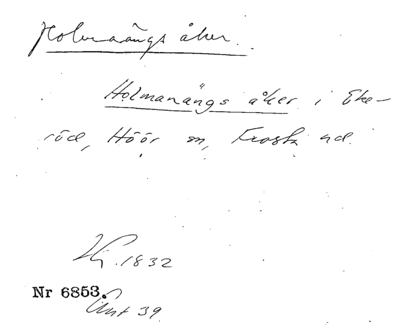 Holmanängs åker.
Holmanängs åker i Eke-
röd, Höör sn, Frosta hd.
1832
Nr 6853.
39